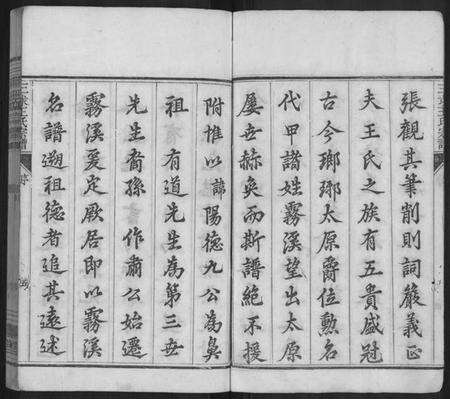 張觀其筆削則詞嚴義正
夫王氏之族有五貴盛冠
古今瑯琊太原爵位勲名
代甲諸姓霧溪望出太原
屢世赫奕而斯譜絕不援
附惟以諱陽德九公為鼻
祖 有道先生為第三世
先生裔孫 作肅公始遷
霧溪爰定厥居即以霧溪
名譜遡祖德者追其遠述
序